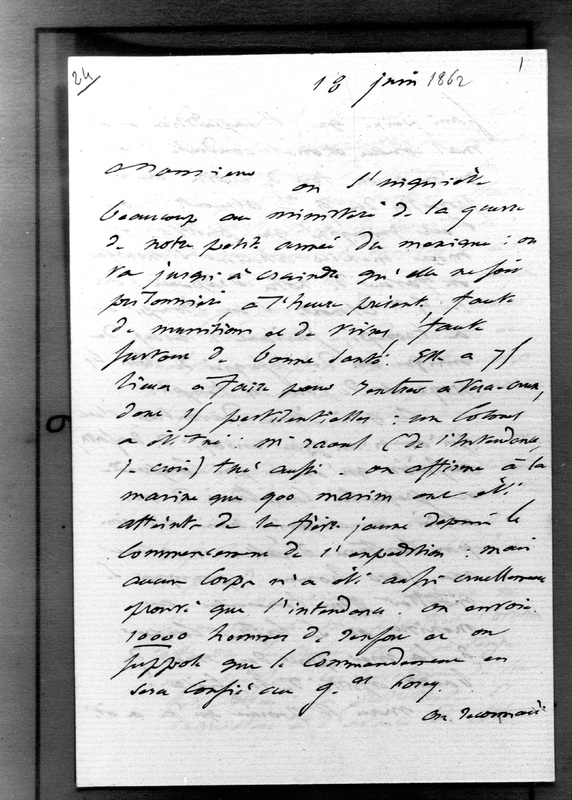 24
1
18 juin 1862
Monsieur
on s'inquiète
beaucoup au ministère de la guerre
de notre petite armée du mexique : on
va jusqu'à craindre qu'elle ne soit
prisonnière, à l'heure présente, faute
de munitions et de vivres, faute
surtout de bonne santé. Elle a 75
lieues à faire pour rentrer à Vera-cruz,
dont 25 pestilentielles : un Colonel
a été tué : Mr raoul (de l'Intendance
je crois) tué aussi. on affirme à la
marine que 900 marins ont été
atteints de la fièvre jaune depuis le
commencement de l'expédition : mais
aucun Corps n'a été aussi cruellement
éprouvé que l'intendance. on envoie
10000 hommes de renfort et on
suppose que le Commandement en
sera confié au g.al Forey.
on